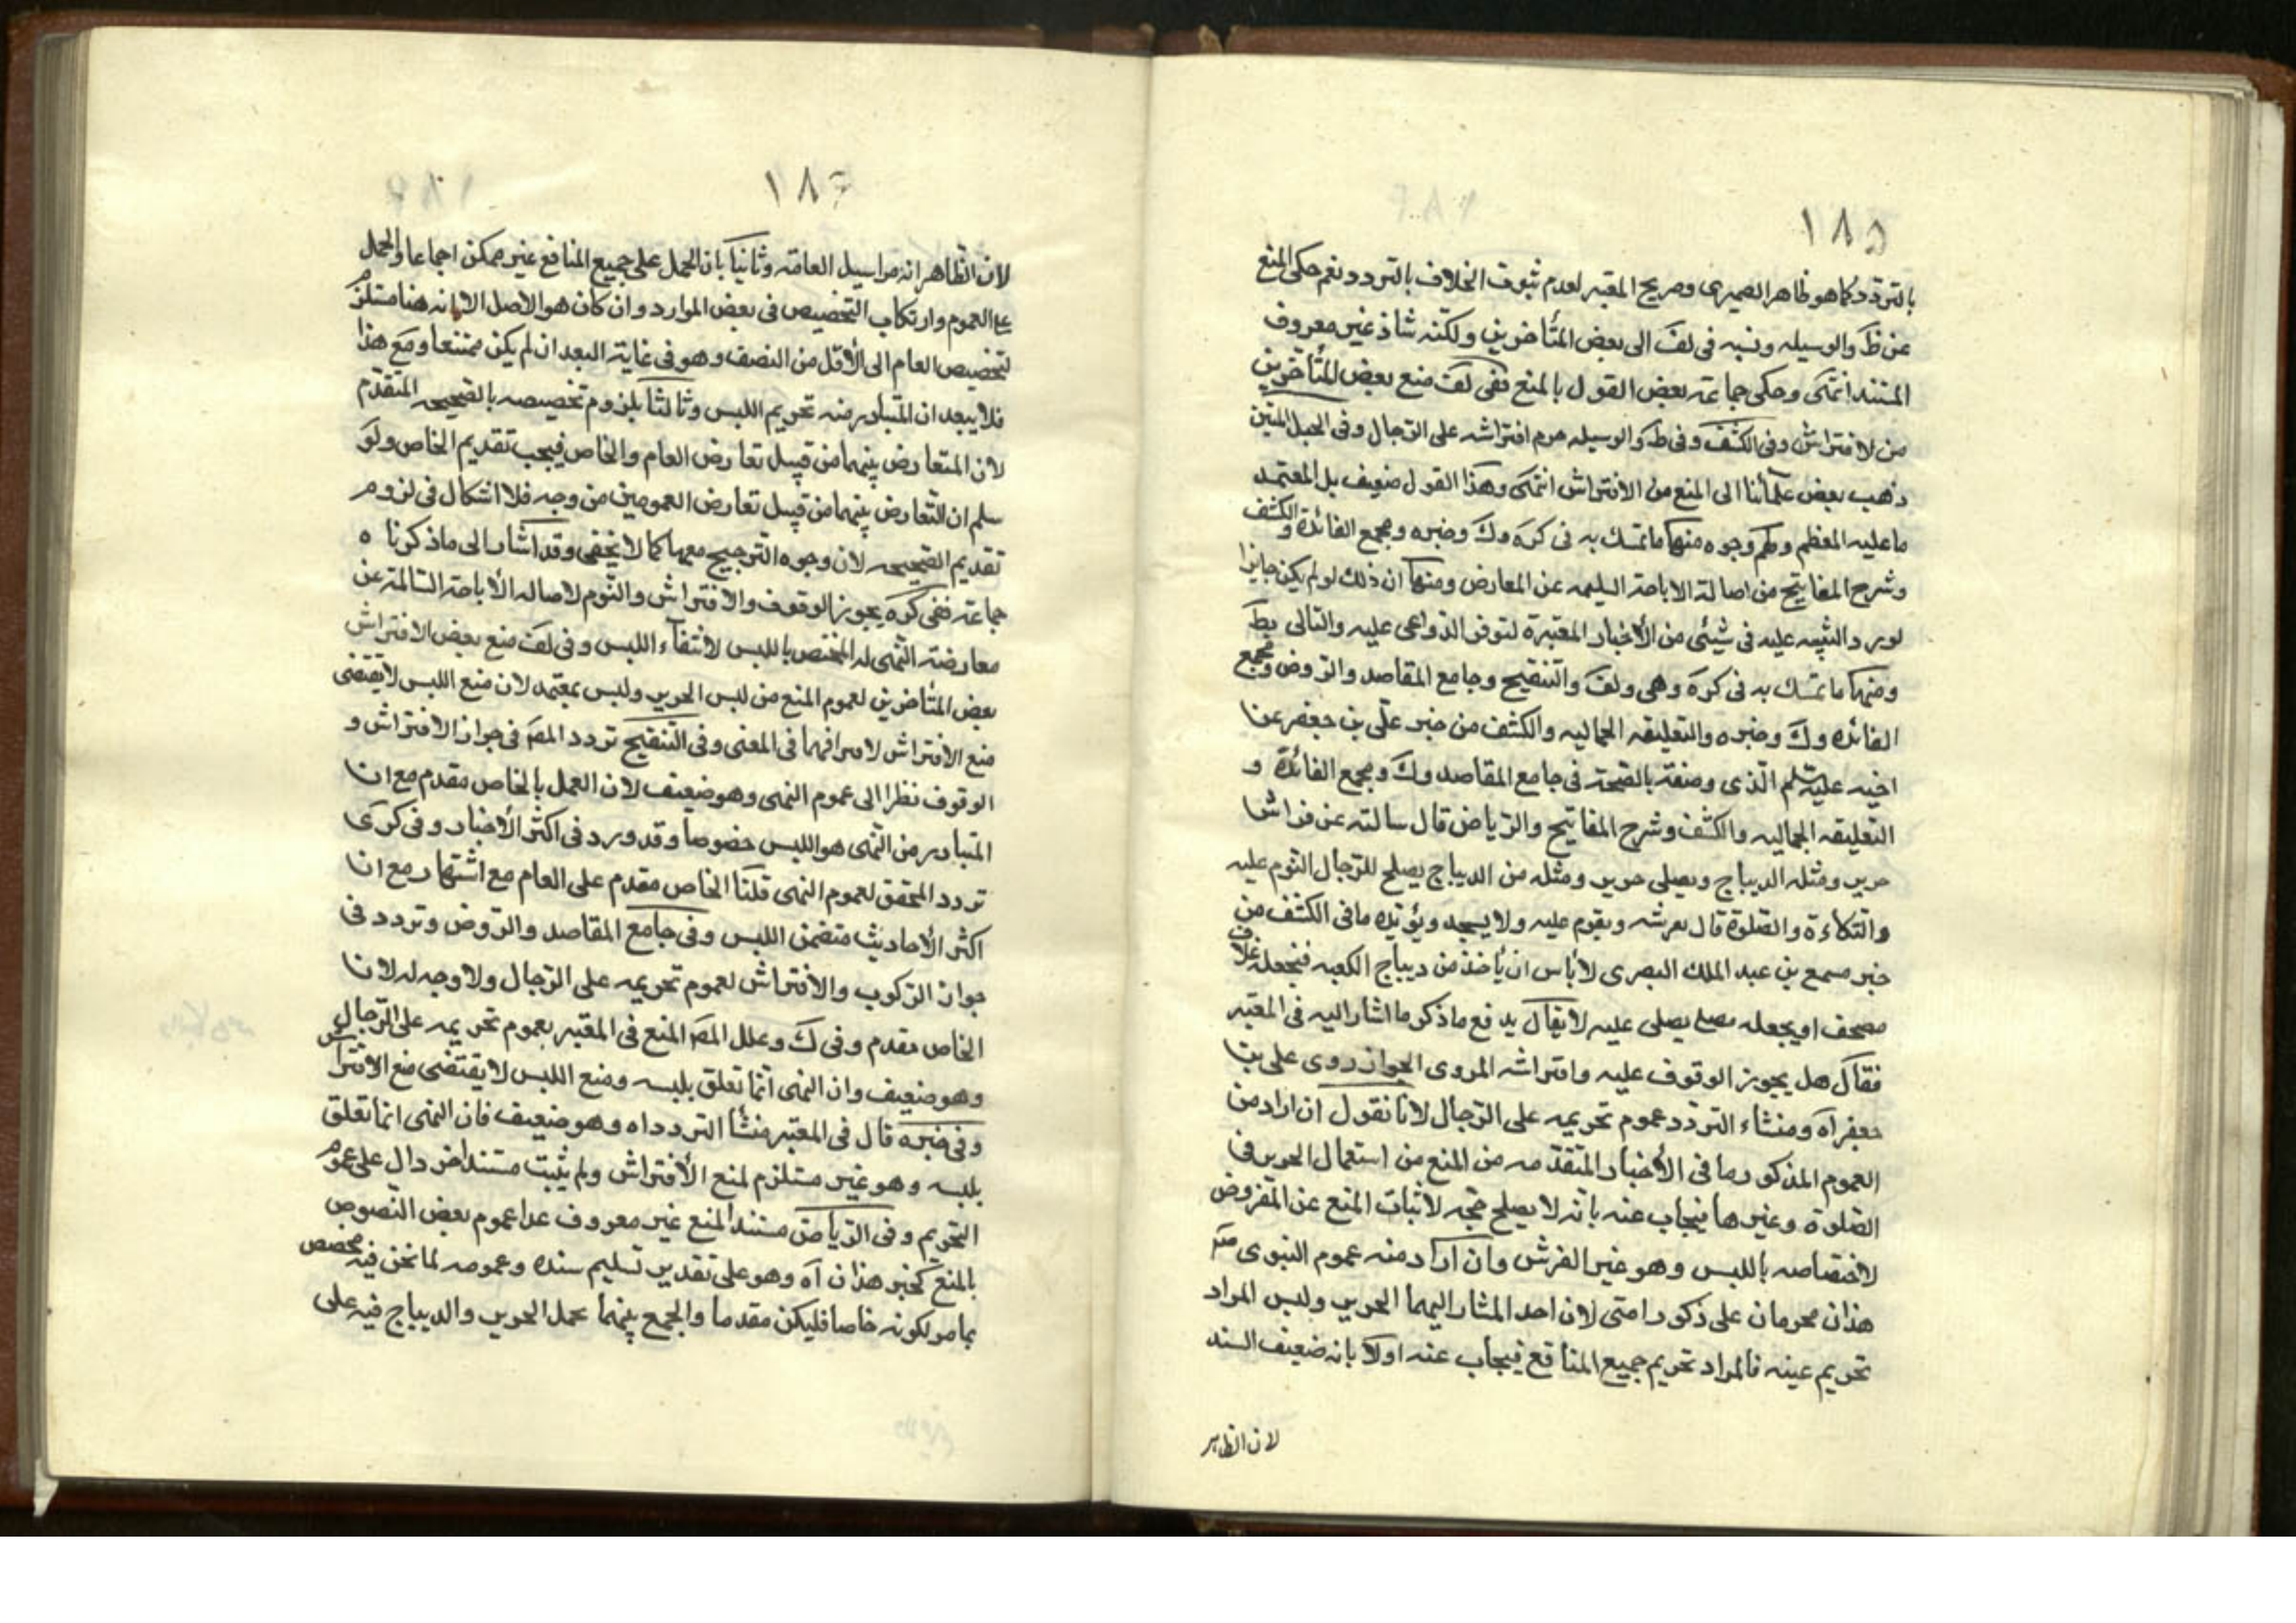 ١٨٥
بالتردد كما هو ظاهر الصيمرى وصريح المعتبر لعدم ثبوت الخلاف بالتردد نعم حكى المنع
عن ط والوسيله ونسبه فى لف الى بعض المتأخرين ولكنه شاذ غير معروف
المستند انتهى وحكى جماعة بعض القول بالمنع ففى لف منع بعض المتأخرين
من لافتراش وفى الكشف وفى ط والوسيله حرم افتراشه على الرجال وفى الحبل المتين
ذهب بعض علمائنا الى المنع من الافتراش انتهى وهذا القول ضعيف بل المعتمد
ما عليه المعظم ولهم وجوه منها ما تمسك به فى كره وك وخيره ومجمع الفائدة والكشف
وشرح المفاتيح من اصالة الاباحة السليمه عن المعارض ومنها ان ذلك لو لم يكن جايزا
لورد التنبيه عليه فى شيئى من الأخبار المعتبرة لتوفر الدواعى عليه والتالى بط
ومنها ما تمسك به فى كره وهى ولف والتنقيح وجامع المقاصد والروض ومجمع
الفائده وك وخيره والتعليقه الجماليه والكشف من خبر على بن جعفر عن
اخيه عليه السلم الذى وصفه بالصحة فى جامع المقاصد وك ومجمع الفائدة و
التعليقه الجماليه والكشف وشرح المفاتيح والرياض قال سالته عن فراش
حرير ومثله الديباج ومصلى حرير ومثله من الديباج يصلح للرجال النوم عليه
والتكاءة والصلوة قال يفرشه ويقوم عليه ولا يسجد ويؤيده ما فى الكشف من
خبر مسمع بن عبد الملك البصرى لا بأس ان يأخذ من ديباج الكعبه فيجعله غلاف
مصحف او يجعله مصلى يصلى عليه لا يقال يدفع ما ذكر ما اشار اليه فى المعتبر
فقال هل يجوز الوقوف عليه وافتراشه المروى الجواز روى على بن
جعفر آه ومنشاء التردد عموم تحريمه على الرجال لانا نقول ان اراد من
العموم المذكور ما فى الأخبار المتقدمه من المنع من استعمال الحرير فى
الصلوة وغيرها فيجاب عنه بانه لا يصلح حجه لاثبات المنع عن المفروض
لاختصاصه باللبس وهو غير الفرش وان اراد منه عموم النبوى ص
هذان محرمان على ذكور امتى لان احد المشار اليهما الحرير وليس المراد
تحريم عينه فالمراد تحريم جميع المنافع فيجاب عنه اولا بانه ضعيف السند
لان الظاهر
١٨٦
لان الظاهر انه مراسيل العامة وثانيا بان الحمل على جميع المنافع غير ممكن اجماعا والحمل
على العموم وارتكاب التخصيص فى بعض الموارد وان كان هو الاصل الا انه هنا مستلزم
لتخصيص العام الى الأقل من النصف وهو فى غاية البعد ان لم يكن ممتنعا ومع هذا
فلا يبعد ان المتبادر منه تحريم اللبس وثالثا بلزوم تخصيصه بالصحيحه المتقدم
لان المتعارض بينهما من قبيل تعارض العام والخاص فيجب تقديم الخاص ولو
سلم ان التعارض بينهما من قبيل تعارض العمومين من وجه فلا اشكال فى لزوم
تقديم الصحيحه لان وجوه الترجيح معها كما لا يخفى وقد اشار الى ما ذكرنا ه
جماعة ففى كره يجوز الوقوف والافتراش والنوم لاصاله الأباحة السالمة عن
معارضة النهى له المختص باللبس لانتفاء اللبس وفى لف منع بعض الافتراش
بعض المتأخرين لعموم المنع من لبس الحرير وليس بمعتمد لان منع اللبس لا يقتضى
منع الافتراش لافتراقهما فى المعنى وفى التنقيح تردد المص فى جواز الافتراش و
الوقوف نظرا الى عموم النهى وهو ضعيف لان العمل بالخاص مقدم مع ان
المتبادر من النهى هو اللبس خصوصا وقد ورد فى اكثر الأخبار وفى كرى
تردد المحقق لعموم النهى قلنا الخاص مقدم على العام مع اشتهار مع ان
اكثر الأحاديث متضمن اللبس وفى جامع المقاصد والروض وتردد فى
جواز الركوب والافتراش لعموم تحريمه على الرجال ولا وجه له لان
الخاص مقدم وفى ك وعلل المص المنع فى المعتبر بعموم تحريمه على الرجال
وهو ضعيف وان النهى انما تعلق بلبسه ومنع اللبس لا يقتضى منع الافتراش
وفى خيره قال فى المعتبر منشأ التردد اه وهو ضعيف فان النهى انما تعلق
بلبسه وهو غير مستلزم لمنع الأفتراش ولم يثبت مستند اخر دال على عموم
التحريم وفى الرياض مستند المنع غير معروف عدا عموم بعض النصوص
بالمنع كخبر هذان آه وهو على تقدير تسليم سنده وعمومه لما نحن فيه مخصص
بما مر لكونه خاصا فليكن مقدما والجمع بينهما بحمل الحرير والديباج فيه على